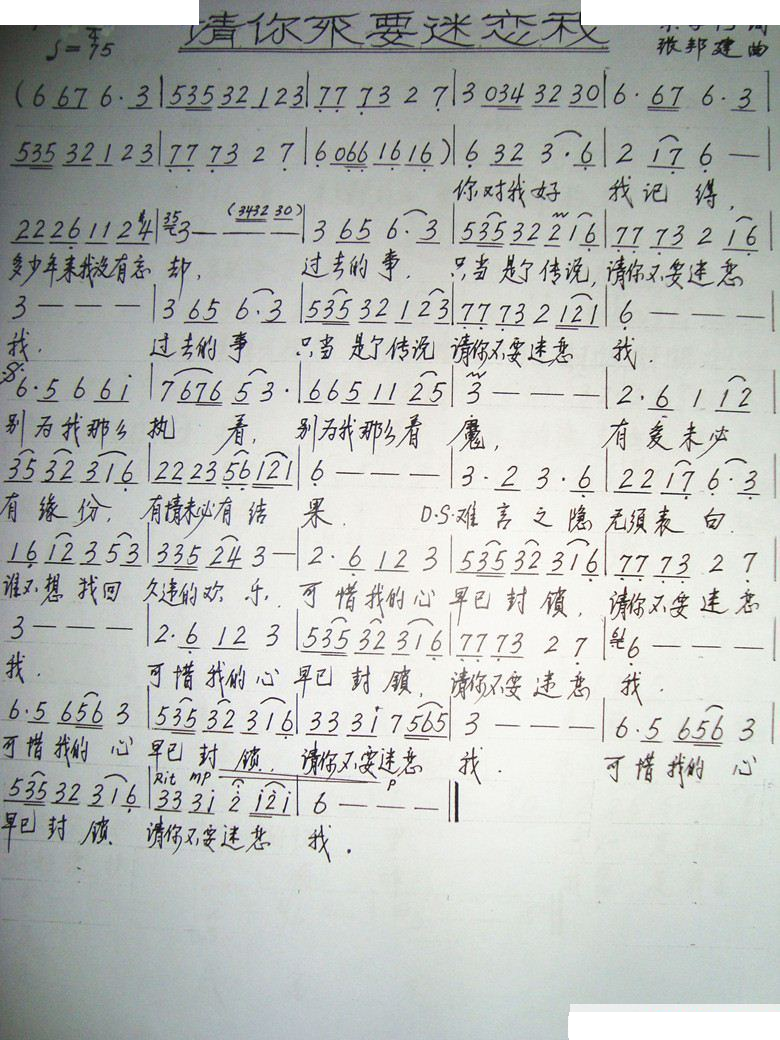 請你不要迷恋我
♩=75
张邦建 曲
(6 67 6· 3 | 535 32 1 23 | 77 73 2 7 | 3 034 32 30 | 6· 67 6· 3 |
535 32 1 23 | 77 73 2 7 | 6 066 1616) | 6 32 3· 6 | 2 17 6 — |
你对我好 我记得,
22 26 11 24 | 3 — — (3432 30) | 3 65 6· 3 | 535 32 2 16 | 77 73 2 16 |
多少年来我没有忘却, 过去的事. 只当是个传说, 请你不要迷恋
3 — — — | 3 65 6· 3 | 535 32 1 23 | 77 73 2 121 | 6 — — — |
我. 过去的事 只当是个传说 请你不要迷恋 我.
6· 5 6 6i | 7676 5 3· | 665 11 25 | 3 — — — | 2· 6 1 12 |
别为我那么执着, 别为我那么着魔, 有爱未必
35 32 316 | 22 23 56 121 | 6 — — — | 3· 2 3· 6 | 22 17 6· 3 |
有缘份, 有情未必有结果. D·S·难言之隐 无须表白.
16 12 3 53 | 335 24 3 — | 2· 6 12 3 | 535 32 316 | 77 73 2 7 |
谁不想找回久违的欢乐. 可惜我的心早已封锁, 请你不要迷恋
3 — — — | 2· 6 12 3 | 535 32 316 | 77 73 2 7 | 6 — — — |
我. 可惜我的心 早已封锁, 请你不要迷恋 我.
6· 5 656 3 | 535 32 316 | 33 3i 7 565 | 3 — — — | 6· 5 656 3 |
可惜我的心 早已封锁, 请你不要迷恋 我. 可惜我的心
Rit mp p
535 32 316 | 33 3i 2 i2i | 6 — — — ‖
早已封锁 请你不要迷恋 我.